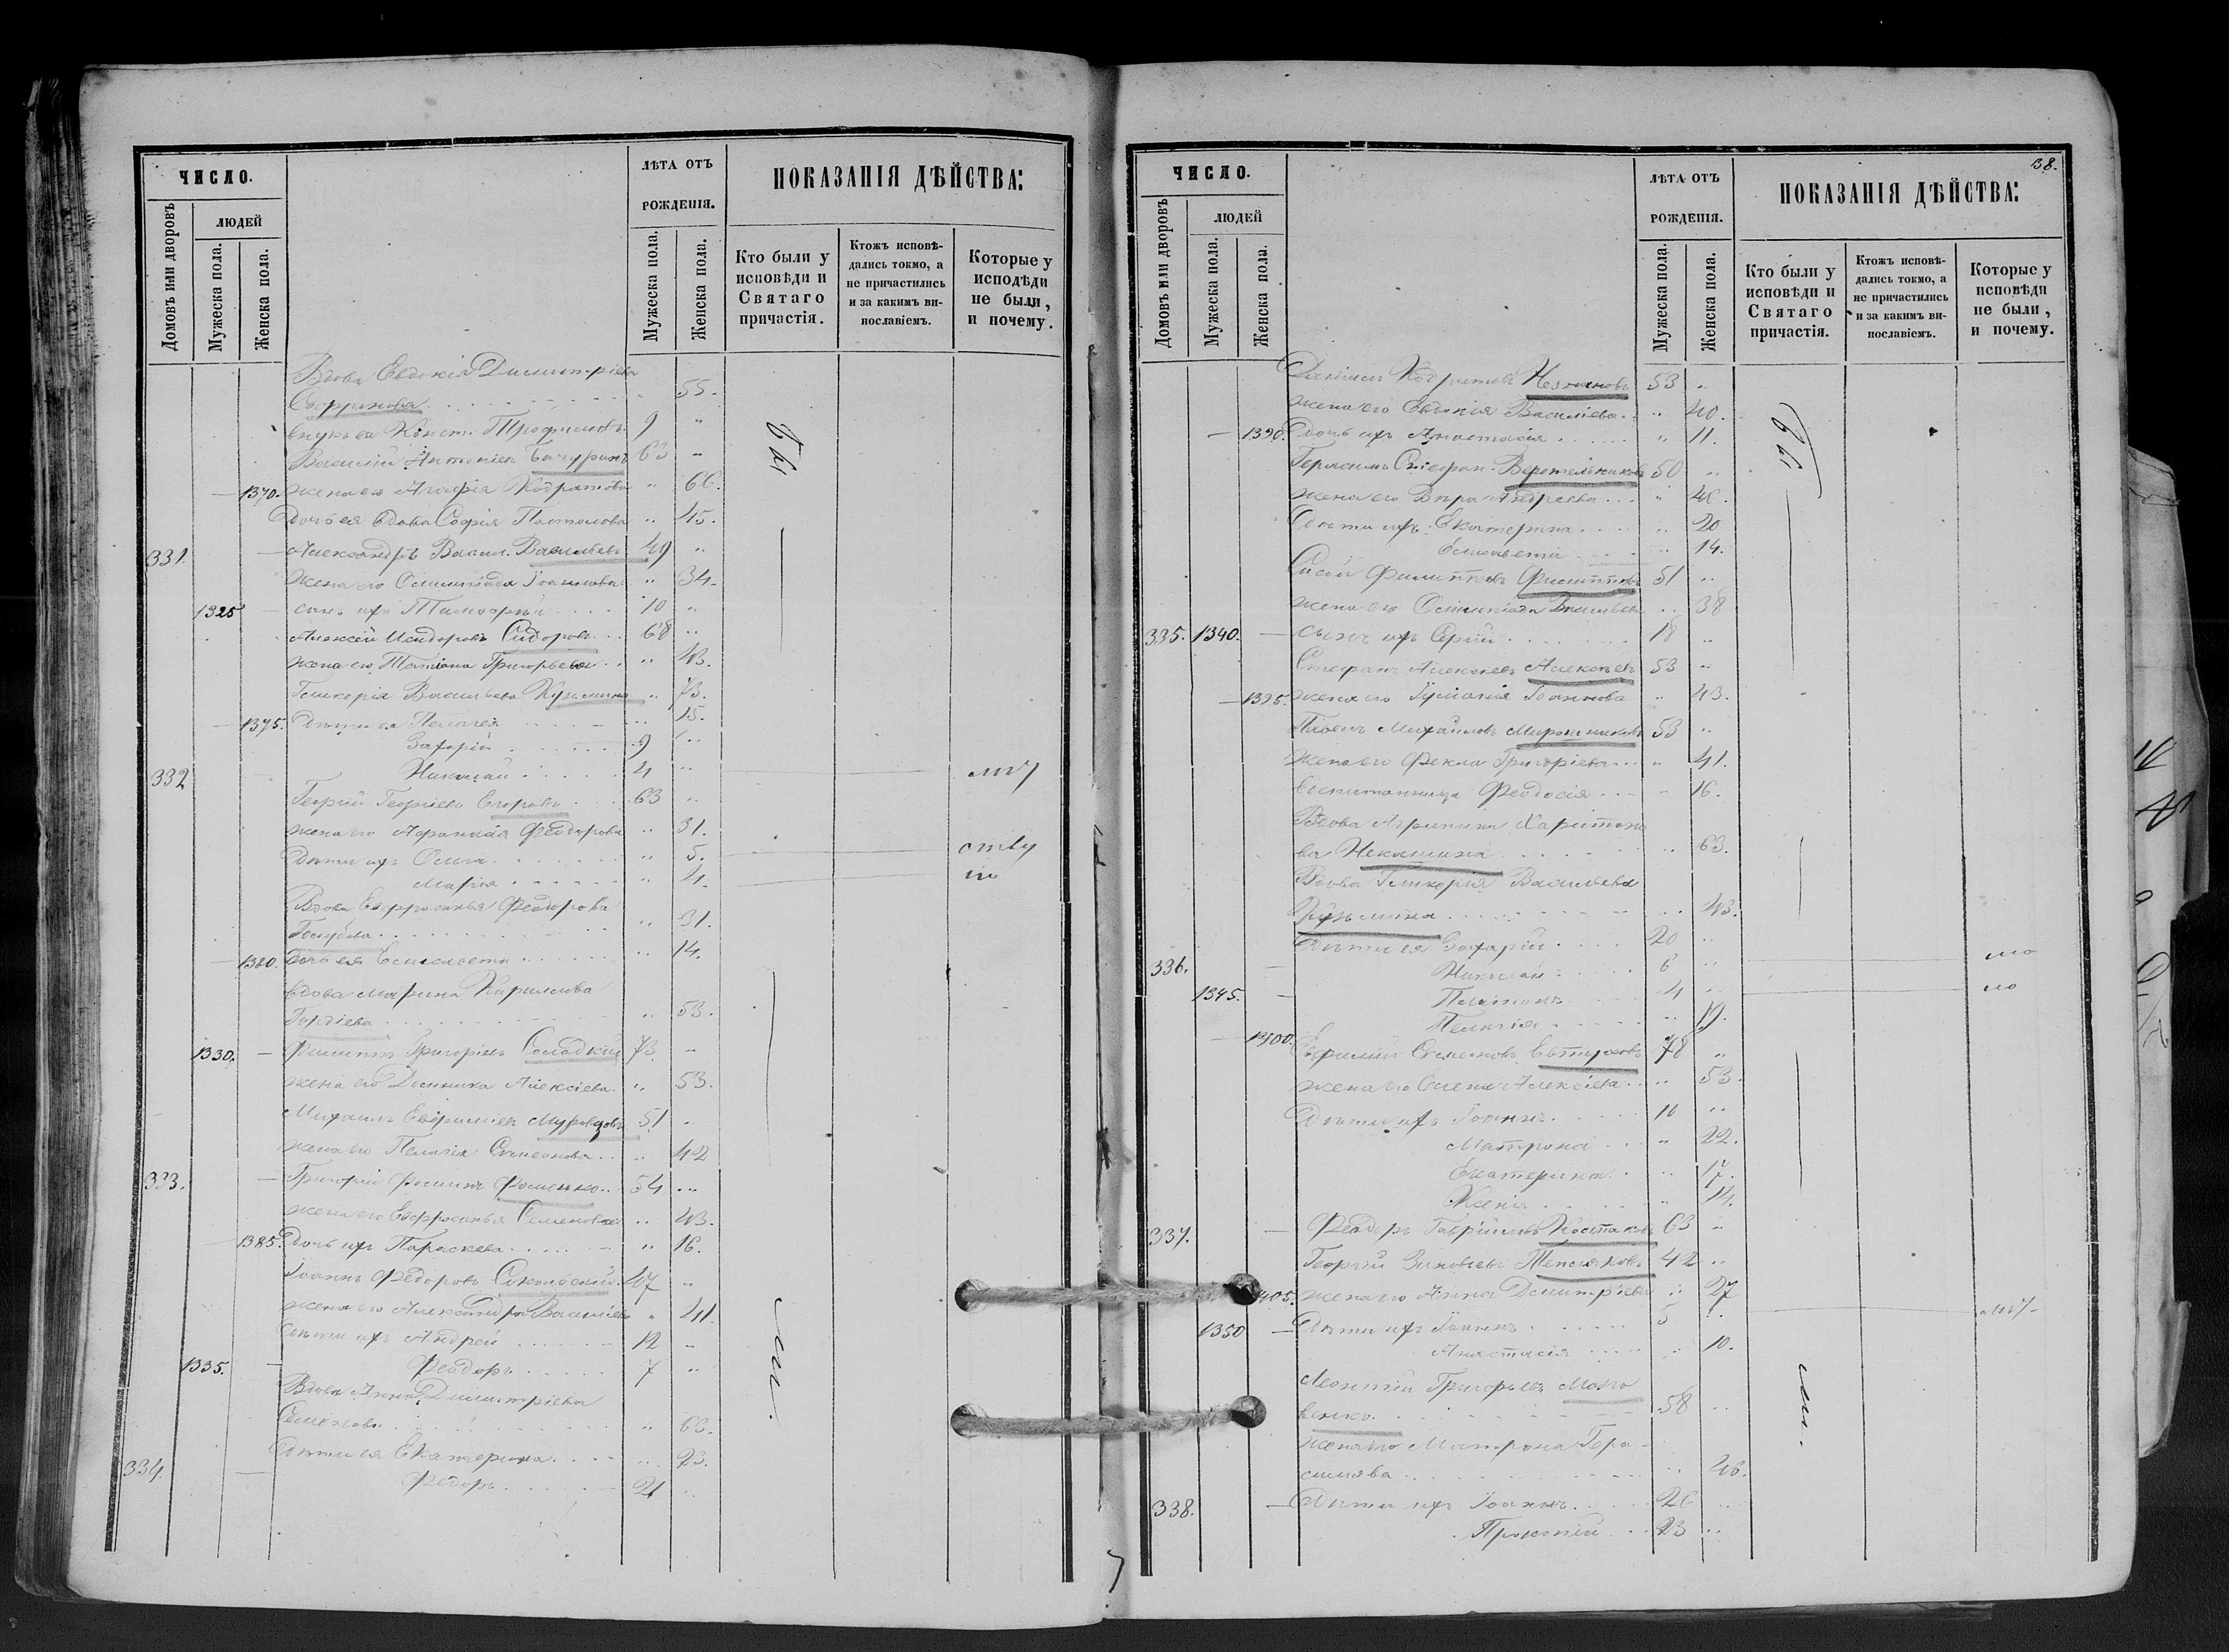 ЧИСЛО.
ЛѢТА ОТЪ РОЖДЕНІЯ.
ПОКАЗАНІЯ ДѢЙСТВА:
Домовъ или дворовъ
ЛЮДЕЙ
Мужеска пола.
Женска пола.
Мужеска пола.
Женска пола.
Кто были у исповѣди и Святаго причастія.
Ктожъ исповѣ-дались токмо, а не причастились и за какимъ ви-нословіемъ.
Которые у исподѣди не были, и почему.
Вдова Евдокія Димитріева
Софронова 55.
внукъ ея Конст. Трофимовъ 9 "
Василій Антоніевъ Бачуринъ 63 "
1370. жена его Агафія Кодратова " 66.
Дочь ея вдова Софія " 45.
331. Александръ Васил. Васильевъ 49 "
жена его Олимпіада Іоаннова " 34.
1325 сынъ ихъ Тимофей 10 "
Алексей Исидоровъ Сидоровъ 68 "
жена его Татіана Григорьева " 43.
Гликерія Васильева Кузьмина " 73.
1375. Дѣти ея Пелагея " 15.
Захарій 9 "
332 Николай 4 " млу
Георгій Георгіевъ Егоровъ 63 "
жена его Афанасія Феодорова " 31.
Дѣти ихъ Ольга " 5.
Марія " 4.
Вдова Евфросинья Феодорова
Голубова " 31.
1380. дочь ея Елисавета " 14.
вдова Марина Кирилова
Гордіева " 53.
1330. Филиппъ Григоріевъ Солодкій 73. "
жена его Алексіева " 53.
Михаилъ Евфиміевъ Муравцовъ 51 "
жена его Пелагія Семеонова " 42
333. Григорій Фоминъ Фоменко 54 "
жена его Евфросинья Семенова " 43.
1385. Дочь ихъ Параскева " 16.
Іоаннъ Федоровъ Сокольскій 47 "
жена его Александра Василіева " 41.
Дѣти ихъ Андрей 12 "
1335. Феодоръ 7 "
Вдова Анна Димитріева
Семенова " 63.
Дѣти ея Екатерина " 23.
334. Федоръ 21 "
Бы
ли.
38.
ЧИСЛО.
ЛѢТА ОТЪ РОЖДЕНІЯ.
ПОКАЗАНІЯ ДѢЙСТВА:
Домовъ или дворовъ
ЛЮДЕЙ
Мужеска пола.
Женска пола.
Мужеска пола.
Женска пола.
Кто были у исповѣди и Святаго причастія.
Ктожъ исповѣ-дались токмо, а не причастились и за какимъ ви-нословіемъ.
Которые у исповѣди не были, и почему.
Кодратовъ 53 "
жена его Евдокія Василіева " 40.
1390. Дочь ихъ Анастасія " 11.
Герасимъ Стефан. Веретельниковъ 50 "
жена его Вѣра Андреева " 46.
Дѣти ихъ Екатерина " 20
Елисавета " 14.
Сисой Филипповъ Филипповъ 51 "
жена его Олимпіада Васильева " 38
335. 1340. сынъ ихъ 18 "
Стефанъ Алексіевъ Алексѣевъ 53 "
1395. жена его Іуліанія Іоаннова " 43.
Павелъ Михайловъ Мирошниковъ 53 "
жена его Фекла Григоріева " 41.
воспитанница Феодосія " 16.
Вдова Агрипина Харитоно
ва " 63.
Вдова Гликерія Васильева
Кузьмина " 43.
Дѣти ея Захарій 20 "
336. Николай 6 "
1345. Платонъ 4 "
Пелагія " 19.
1400. Евфимій Семеновъ Евтуховъ 78 "
жена его Елена Алексіева " 53.
Дѣти ихъ Іоаннъ "
Матрона " 22.
Екатерина " 17.
Ксенія " 14.
337. Феодоръ Гавріиловъ Костаковъ 63 "
Георгій Зиновіевъ Тепляковъ 42 "
1405. жена его Анна Димитріева " 27
1350 Дѣти ихъ Іоаннъ 5 "
Анастасія " 10.
Леонтій Григорьевъ Мохо
венко 58 "
жена его Матрона Гера-
симова " 46.
338. Дѣти ихъ Іоаннъ 26 "
Прокопій 23 "
Бы
ли.